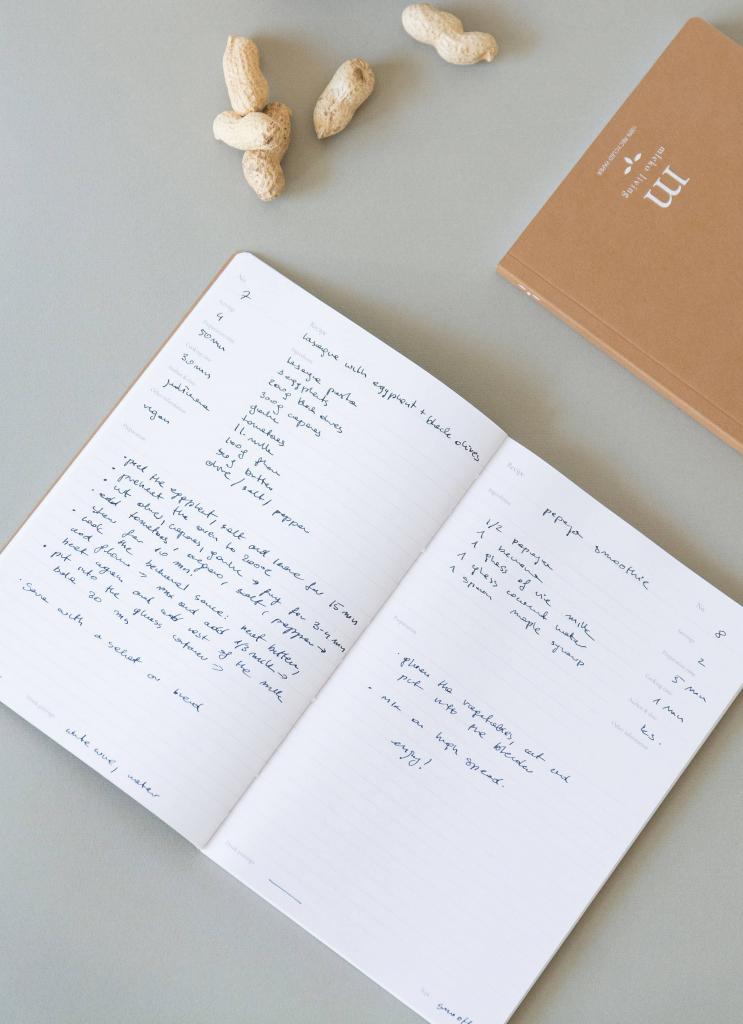 No.
7
Servings
4
Preparation time
50 min
Cooking time
30 min
Author & date
Other information
vegan
Recipe
lasagne with eggplant + black olives
Ingredients
lasagne pasta
3 eggplants
200g black olives
300g capares
garlic
tomatoes
1l milk
100g flour
50g butter
olive / salt / pepper
Preparation
· peel the eggplent, salt and leave for 15 min
· preheat the oven to 200c
· cut olive, capares, garlic → fry for 3-4 min
· add tomatoes, oregano, salt, pepper →
stew for 10 min.
· cook the bechamel sauce: heat butter,
add flour → mix and add 1/3 milk →
heat again and add rest of the milk
· put into the glass container →
bake 30 min
· Serve with a salad or bread
Drink pairings
white wine, water
Recipe
papaya smoothie
Ingredients
1/2 papaya
1 banana
1 glass of rice milk
1 glass coconut water
1 spoon maple syroup
No.
8
Servings
2
Preparation time
5 min
Cooking time
1 min
Author & date
ks.
Other information
Preparation
the vegetables, cut and
put into the blender
· mix on high spead.
enjoy!
Drink pairings
Tips
100% RECYCLED PAPER
mleko living
m